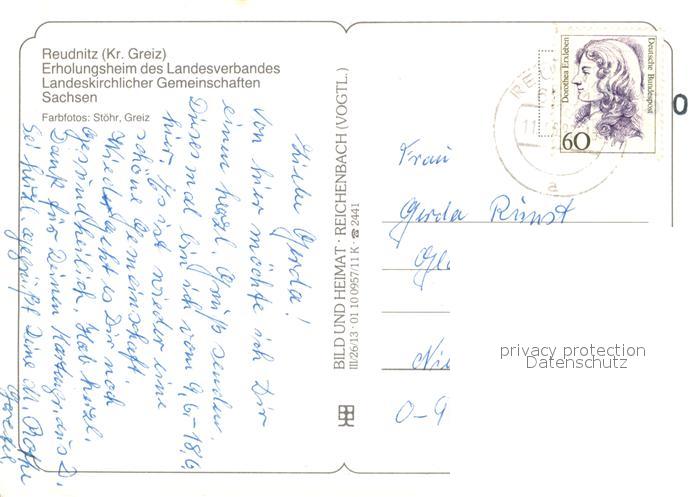 Reudnitz (Kr. Greiz)
Erholungsheim des Landesverbandes
Landeskirchlicher Gemeinschaften
Sachsen
Farbfotos: Stöhr, Greiz
Liebe Gerda!
Von hier möchte ich Dir
einen herzl. Gruß senden.
Dieses mal bin ich vom 9.6.-18.6.
hier. Es ist wieder eine
schöne Gemeinschaft.
Wie geht es Dir noch
gesundheitlich. Hab herzl.
Dank für Deinen Kartengr. aus D.
Sei herzl. gegrüßt Deine M.
BILD UND HEIMAT · REICHENBACH (VOGTL.)
III/26/13 · 01 10 0957/11 K · ☎ 2441
Dorothea Erxleben
Deutsche Bundespost
60
a
O
Frau
Gerda
O-9
privacy protection
Datenschutz